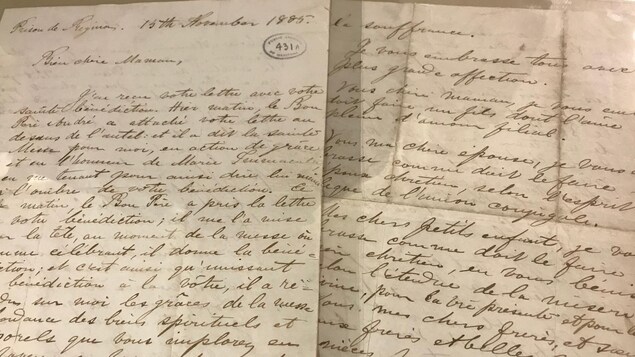 Prison de Régina. 15th November 1885.
431
Bien chère Maman,
J'ai reçu votre lettre avec votre
sainte bénédiction. Hier matin, le Bon
Père André a attaché votre lettre au
dessus de l'autel: et il a dit la sainte
Messe pour moi, en action de grâce
et en l'honneur de Marie
me tenant pour ainsi dire
à l'ombre de votre bénédiction. Ce
matin, le Bon Père a pris la lettre
votre bénédiction; il me l'a mise
sur la tête, au moment de la messe où
comme célébrant, il donne la béné-
diction; et c'est ainsi qu'unissant
bénédiction à la vôtre, il a ré-
sur moi les grâces de la messe
abondance des biens spirituels et
que vous implorez en
la souffrance.
Je vous embrasse tous avec
plus grande affection.
Vous chère maman, je vous em
doit faire un fils dont l'âme
pleine d'amour filial.
Vous ma chère épouse, je vous
brasse comme doit le faire
époux chrétien, selon l'esprit
de l'union conjugale.
Mes chers petits enfants, je vous
brasse comme doit le faire
chrétien, en vous bénis
l'étendue de la miséri
divine, pour la vie présente et pour la
Vous mes chers frères, et
beaux frères et belles
nièces